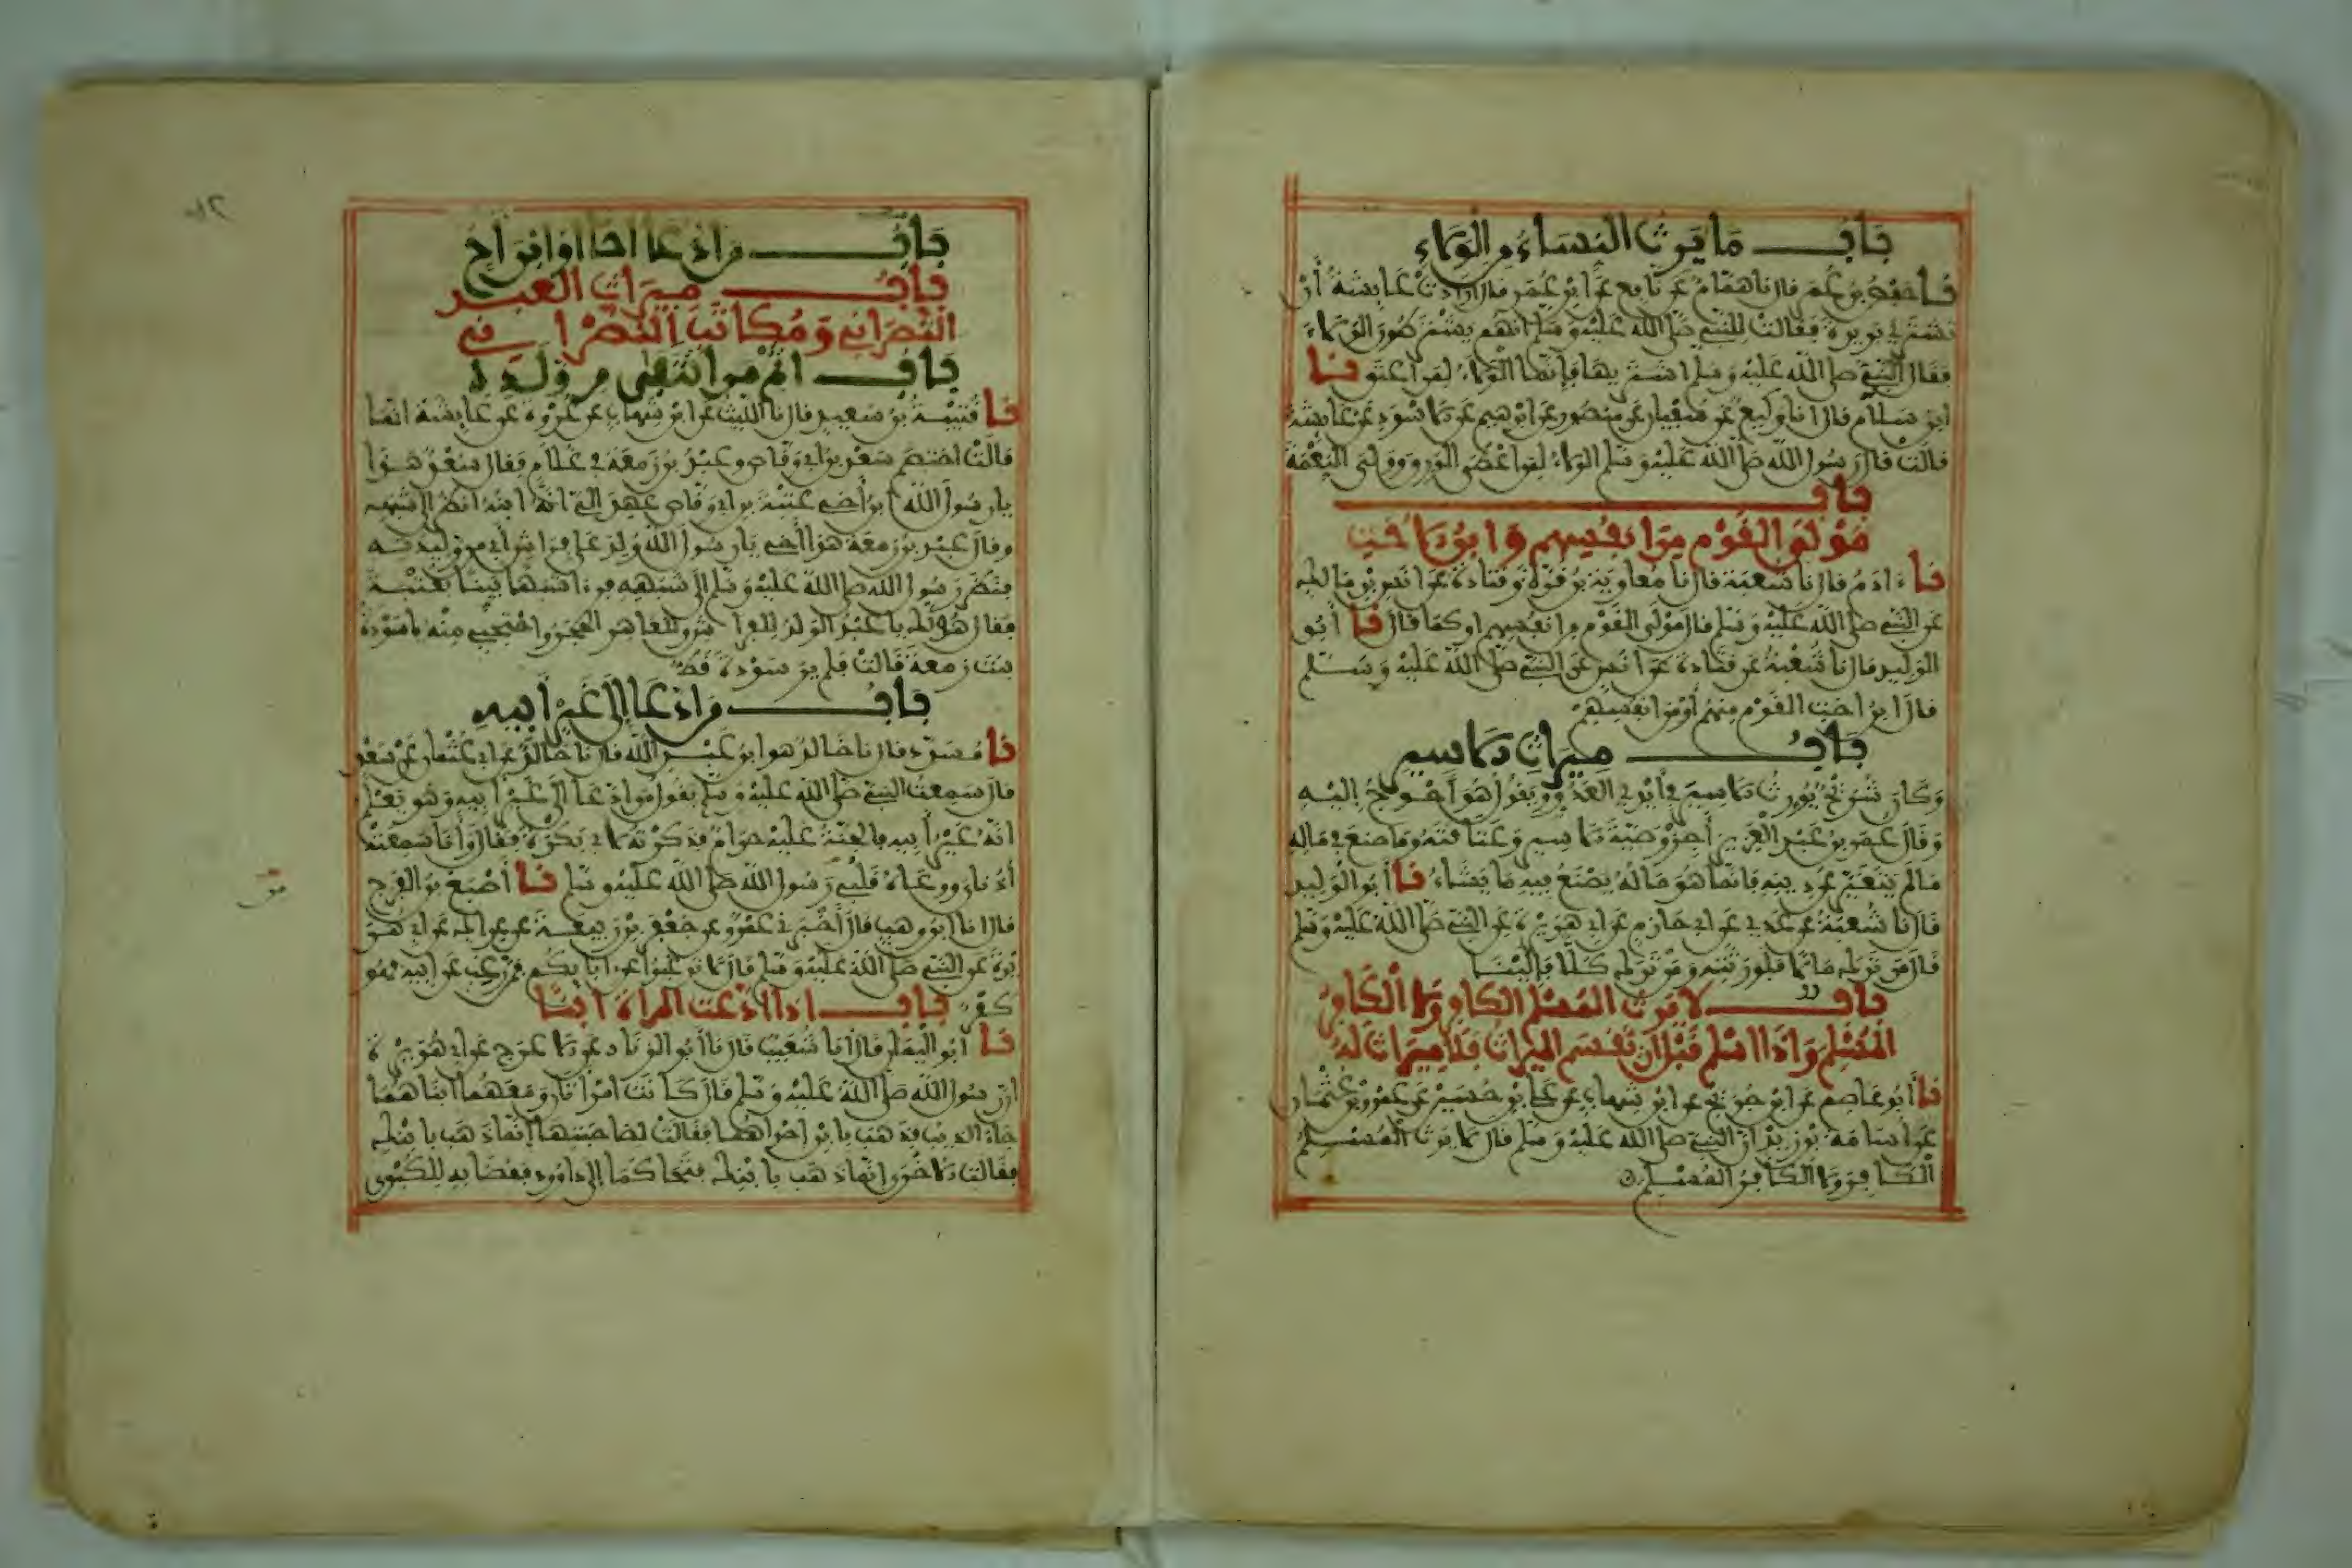 باب ما يرث النساء من الولاء
نا حفص بن عمر قال نا همام عن نافع عن ابن عمر قال ارادت عايشة أن
تشتري بريرة فقالت للنبي صلى الله عليه وسلم انهم يشترطون الولاء
فقال النبي صلى الله عليه وسلم اشتريها فإنما الولاء لمن اعتق نا
ابن سلام قال انا وكيع عن سفيان عن منصور عن ابرهيم عن الاسود عن عايشة
قالت قال رسول الله صلى الله عليه وسلم الولاء لمن اعطى الورق وولي النعمة
باب
مولى القوم من انفسهم وابن الاخت
نا ءادم قال نا شعبة قال نا معاوية بن قرة وقتادة عن انس بن مالك
عن النبي صلى الله عليه وسلم قال مولى القوم من انفسهم او كما قال نا أبو
الوليد قال نا شعبة عن قتادة عن انس عن النبي صلى الله عليه وسلم
قال ابن اخت القوم منهم أو من انفسهم
باب ميراث الاسير
وكان شريح يورث الاسير في أيدي العدو ويقول هو أحوج اليه
وقال عمر بن عبد العزيز أجز وصية الاسير وعتاقته وما صنع في ماله
ما لم يتغير عن دينه فانما هو ماله يصنع فيه ما يشاء نا أبو الوليد
قال نا شعبة عن عدي عن ابي حازم عن ابي هريرة عن النبي صلى الله عليه وسلم
قال من ترك مالا فلورثته ومن ترك كلا فإلينا
باب لا يرث المسلم الكافر ولا الكافر
المسلم واذا اسلم قبل ان تقسم الميراث فلا ميراث له
نا أبو عاصم عن ابن جريج عن ابن شهاب عن علي بن حسين عن عمرو بن عثمان
عن اسامة بن زيد ان النبي صلى الله عليه وسلم قال لا يرث المسلم
الكافر ولا الكافر المسلم
باب من ادعا اخا او ابن اخ
باب ميراث العبد
النصراني ومكاتب النصراني
باب اثم من انتفى من ولده
نا قتيبة بن سعيد قال نا الليث عن ابن شهاب عن عروة عن عايشة انها
قالت اختصم سعد بن ابي وقاص وعبد بن زمعة في غلام فقال سعد هذا
يا رسول الله ابن أخي عتبة بن ابي وقاص عهد الي انه ابنه انظر إلى شبهه
وقال عبد بن زمعة هذا أخي يا رسول الله ولد على فراش أبي من وليدته
فنظر رسول الله صلى الله عليه وسلم إلى شبهه فرءا شبها بينا بعتبة
فقال هو لك يا عبد الولد للفراش وللعاهر الحجر واحتجبي منه يا سودة
بنت زمعة قالت فلم ير سودة قط
باب من ادعا إلى غير أبيه
نا مسدد قال نا خالد هو ابن عبد الله قال نا خالد عن ابي عثمان عن سعد
قال سمعت النبي صلى الله عليه وسلم يقول من ادعا الى غير أبيه وهو يعلم
انه غير أبيه فالجنة عليه حرام فذكرته لابي بكرة فقال وأنا سمعته
أذناي ووعاه قلبي من رسول الله صلى الله عليه وسلم نا أصبغ بن الفرج
قال انا ابن وهب قال أخبرني عمرو عن جعفر بن ربيعة عن عراك عن ابي هر
يرة عن النبي صلى الله عليه وسلم قال لا ترغبوا عن ءابايكم فمن رغب عن ابيه فهو
كفر باب اذا ادعت المراة ابنا
نا أبو اليمان قال أنا شعيب قال نا أبو الزناد عن الاعرج عن ابي هريرة
ان رسول الله صلى الله عليه وسلم قال كانت امرأتان ومعهما ابناهما
جاء الذيب فذهب بابن احداهما فقالت لصاحبتها إنما ذهب بابنك
فقالت الاخرى انما ذهب بابنك فتحاكما إلى داوود فقضا به للكبرى